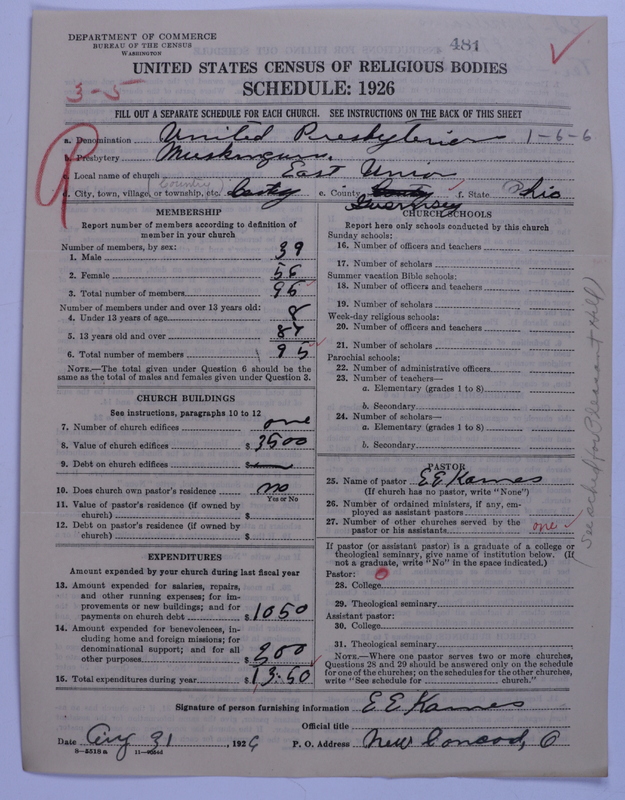 DEPARTMENT OF COMMERCE
BUREAU OF THE CENSUS
WASHINGTON
481
UNITED STATES CENSUS OF RELIGIOUS BODIES
SCHEDULE: 1926
3-5
FILL OUT A SEPARATE SCHEDULE FOR EACH CHURCH. SEE INSTRUCTIONS ON THE BACK OF THIS SHEET
a. Denomination United Presbyterian 1-6-6
b. Presbytery Muskingum
c. Local name of church East Union
d. City, town, village, or township, etc. (Country) e. County Guernsey f. State Ohio
MEMBERSHIP
Report number of members according to definition of member in your church
Number of members, by sex:
1. Male 39
2. Female 56
3. Total number of members 95
Number of members under and over 13 years old:
4. Under 13 years of age 8
5. 13 years old and over 87
6. Total number of members 95
NOTE.—The total given under Question 6 should be the
same as the total of males and females given under Question 3.
CHURCH BUILDINGS
See instructions, paragraphs 10 to 12
7. Number of church edifices one
8. Value of church edifices $ 3500
9. Debt on church edifices $
10. Does church own pastor's residence no
Yes or No
11. Value of pastor's residence (if owned by
church) $
12. Debt on pastor's residence (if owned by
church) $
EXPENDITURES
Amount expended by your church during last fiscal year
13. Amount expended for salaries, repairs,
and other running expenses; for im-
provements or new buildings; and for
payments on church debt $ 1050
14. Amount expended for benevolences, in-
cluding home and foreign missions; for
denominational support; and for all
other purposes 300
15. Total expenditures during year $ 1350
CHURCH SCHOOLS
Report here only schools conducted by this church
Sunday schools:
16. Number of officers and teachers
17. Number of scholars
Summer vacation Bible schools:
18. Number of officers and teachers
19. Number of scholars
Week-day religious schools:
20. Number of officers and teachers
21. Number of scholars
Parochial schools:
22. Number of administrative officers
23. Number of teachers—
a. Elementary (grades 1 to 8)
b. Secondary
24. Number of scholars—
a. Elementary (grades 1 to 8)
b. Secondary
PASTOR
25. Name of pastor E E Karnes
(If church has no pastor, write "None")
26. Number of ordained ministers, if any, em-
ployed as assistant pastors
27. Number of other churches served by the
pastor or his assistants one
If pastor (or assistant pastor) is a graduate of a college or
theological seminary, give name of institution below. (If
not a graduate, write "No" in the space indicated.)
Pastor:
28. College
29. Theological seminary
Assistant pastor:
30. College
31. Theological seminary
NOTE.—Where one pastor serves two or more churches,
Questions 28 and 29 should be answered only on the schedule
for one of the churches; on the schedules for the other churches,
write "See schedule for church."
(See sched for Pleasant Hill)
Signature of person furnishing information E E Karnes
Official title
Date Aug 31, 1926 P. O. Address New Concord, O
8-5518a